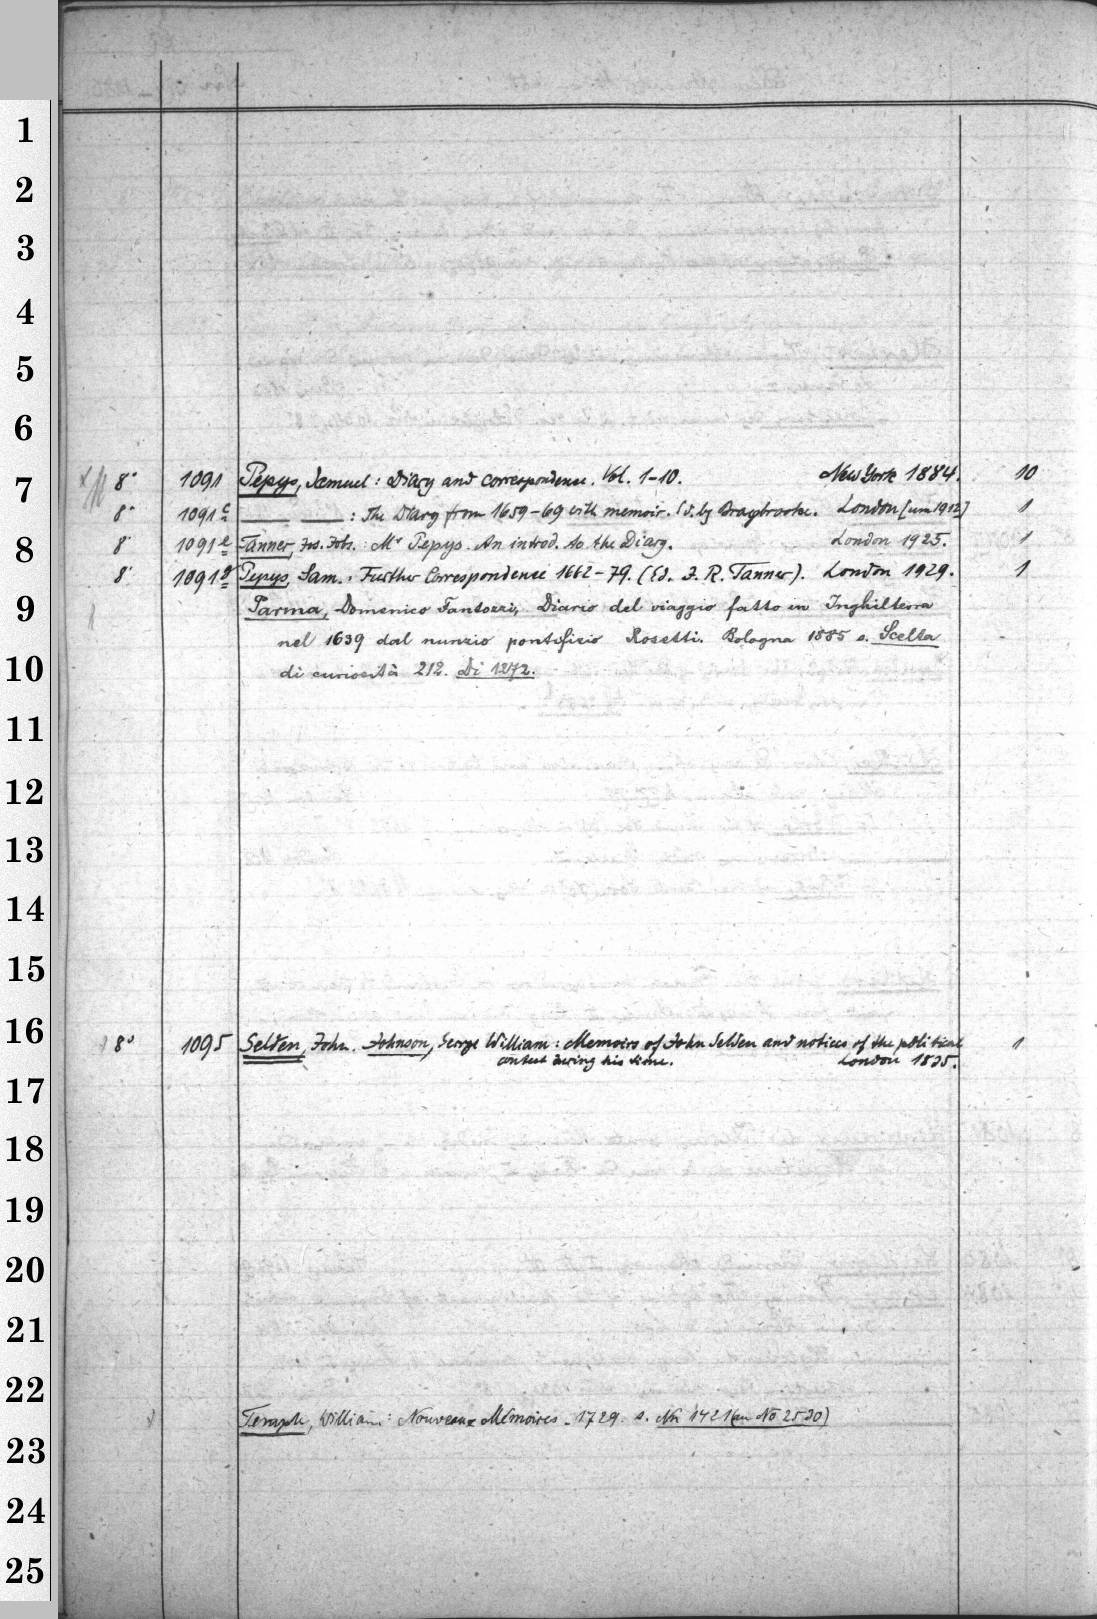 1
2
3
4
5
6
7
8° 1091 Pepys, Samuel: Diary and correspondence. Vol. 1-10. New York 1884. 10
8° 1091c — — : The Diary from 1659-69 with memoir. Ed. by Braybrooke. London [um 1912] 1
8
8° 1091e Tanner, Jos. Rob.: Mr Pepys. An introd. to the Diary. London 1925. 1
8° 1091g Pepys, Sam.: Further Correspondence 1662-79. (Ed. J. R. Tanner). London 1929. 1
9
Parma, Domenico Fantozzi, Diario del viaggio fatto in Inghilterra
nel 1639 dal nunzio pontificio Rosetti. Bologna 1885 s. Scelta
10
di curiosità 212. Di 1272.
11
12
13
14
15
16
8° 1095 Selden, John. Johnson, George William: Memoirs of John Selden and notices of the political 1
contest during his time. London 1835.
17
18
19
20
21
22
Temple, William: Nouveaux Mémoires. 1729. s. Nk 1421 (an No 2530)
23
24
25